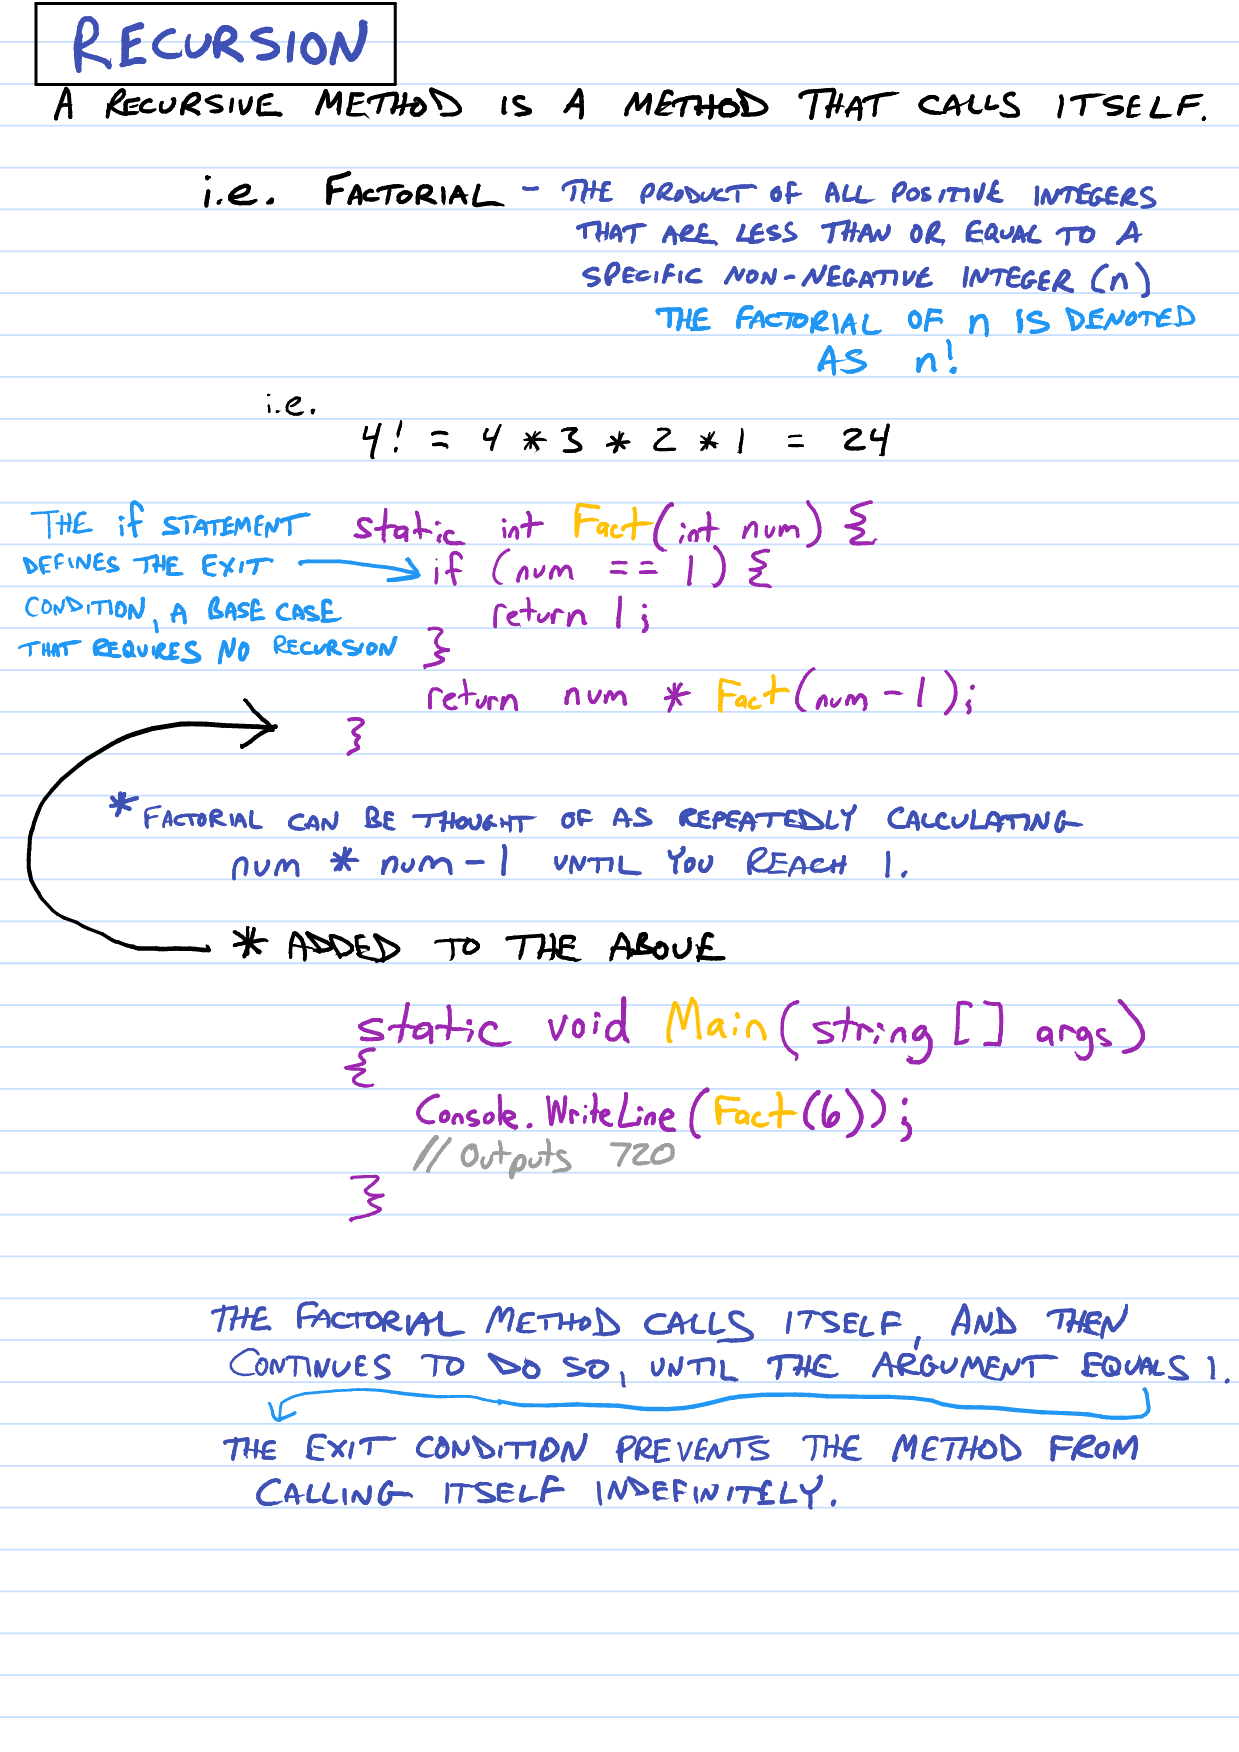 RECURSION
A RECURSIVE METHOD IS A METHOD THAT CALLS ITSELF.
i.e. FACTORIAL - THE PRODUCT OF ALL POSITIVE INTEGERS
THAT ARE LESS THAN OR EQUAL TO A
SPECIFIC NON-NEGATIVE INTEGER (n)
THE FACTORIAL OF n IS DENOTED
AS n!
i.e.
4! = 4 * 3 * 2 * 1 = 24
THE if STATEMENT
DEFINES THE EXIT
CONDITION, A BASE CASE
THAT REQUIRES NO RECURSION
static int Fact(int num) {
if (num == 1) {
return 1;
}
return num * Fact(num - 1);
}
* FACTORIAL CAN BE THOUGHT OF AS REPEATEDLY CALCULATING
num * num - 1 UNTIL YOU REACH 1.
* ADDED TO THE ABOVE
static void Main(string[] args)
{
Console.WriteLine(Fact(6));
// Outputs 720
}
THE FACTORIAL METHOD CALLS ITSELF, AND THEN
CONTINUES TO DO SO, UNTIL THE ARGUMENT EQUALS 1.
THE EXIT CONDITION PREVENTS THE METHOD FROM
CALLING ITSELF INDEFINITELY.